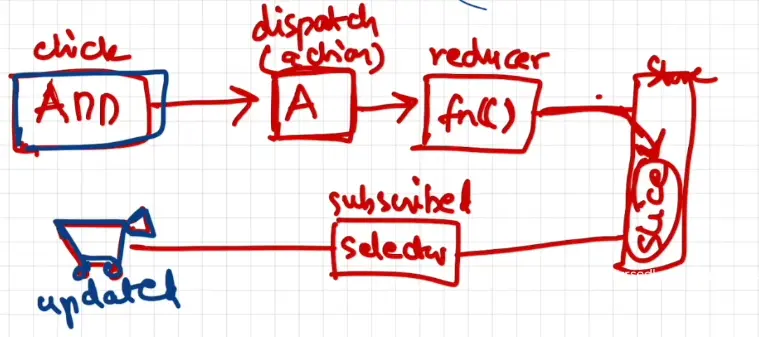 click
ADD
dispatch
(action)
A
reducer
fn()
Store
slice
subscribed
selector
updated